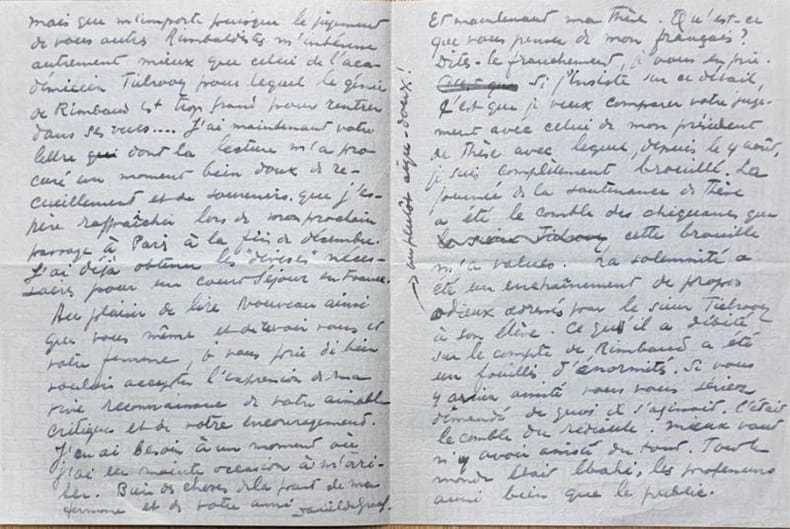 mais que m'importe puisque le jugement
de vous autres Rimbaldistes m'intéresse
autrement mieux que celui de l'aca-
démicien Tielrooy pour lequel le génie
de Rimbaud est trop grand pour rentrer
dans ses vues.... J'ai maintenant votre
lettre qui dont la lecture m'a pro-
curé un moment bien doux de re-
cueillement et de souvenirs que j'es-
père raffraîchir lors de mon prochain
passage à Paris à la fin de décembre.
J'ai déjà obtenu les "devises" néces-
saires pour un court séjour en France.
Au plaisir de lire Nouveau ainsi
que vous même et de revoir vous et
votre femme, je vous prie de bien
vouloir accepter l'expression de ma
vive reconnaissance de votre aimable
critique et de votre encouragement.
J'en ai besoin à un moment où
j'ai eu mainte occasion à m'attris-
ter. Bien des choses de la part de ma
femme et de votre ami Daniel de Graaf.
→ ou plutôt aigu-doux!
Et maintenant ma thèse. Qu'est-ce
que vous pensez de mon français?
Dites-le franchement, je vous en prie.
Si j'insiste sur ce détail,
c'est que je veux comparer votre juge-
ment avec celui de mon président
de thèse avec lequel, depuis le 4 août,
je suis complètement brouillé. La
journée de la soutenance de thèse
a été le comble des chicaneries que
le sieur Tielrooy cette brouille
m'a values. La solennité a
été un enchaînement de propos
odieux adressés par le sieur Tielrooy
à son élève. Ce qu'il a débité
sur le compte de Rimbaud a été
un fouillis d'énormités. Si vous
y aviez assisté vous vous seriez
demandé de quoi il s'agissait. C'était
le comble du ridicule: mieux vaut
n'y avoir assisté du tout. Tout le
monde était ébahi, les professeurs
aussi bien que le public.